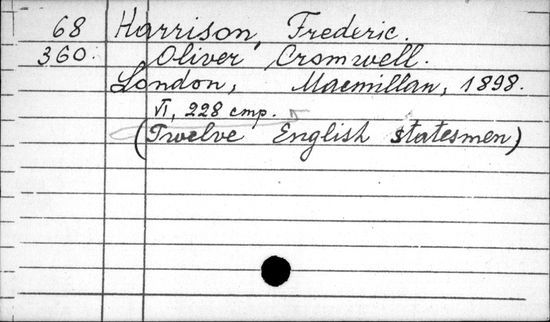 68 Harrison, Frederic.
360. Oliver Cromwell.
London, Macmillan, 1898.
VI, 228 cmp.
(Twelve English statesmen)